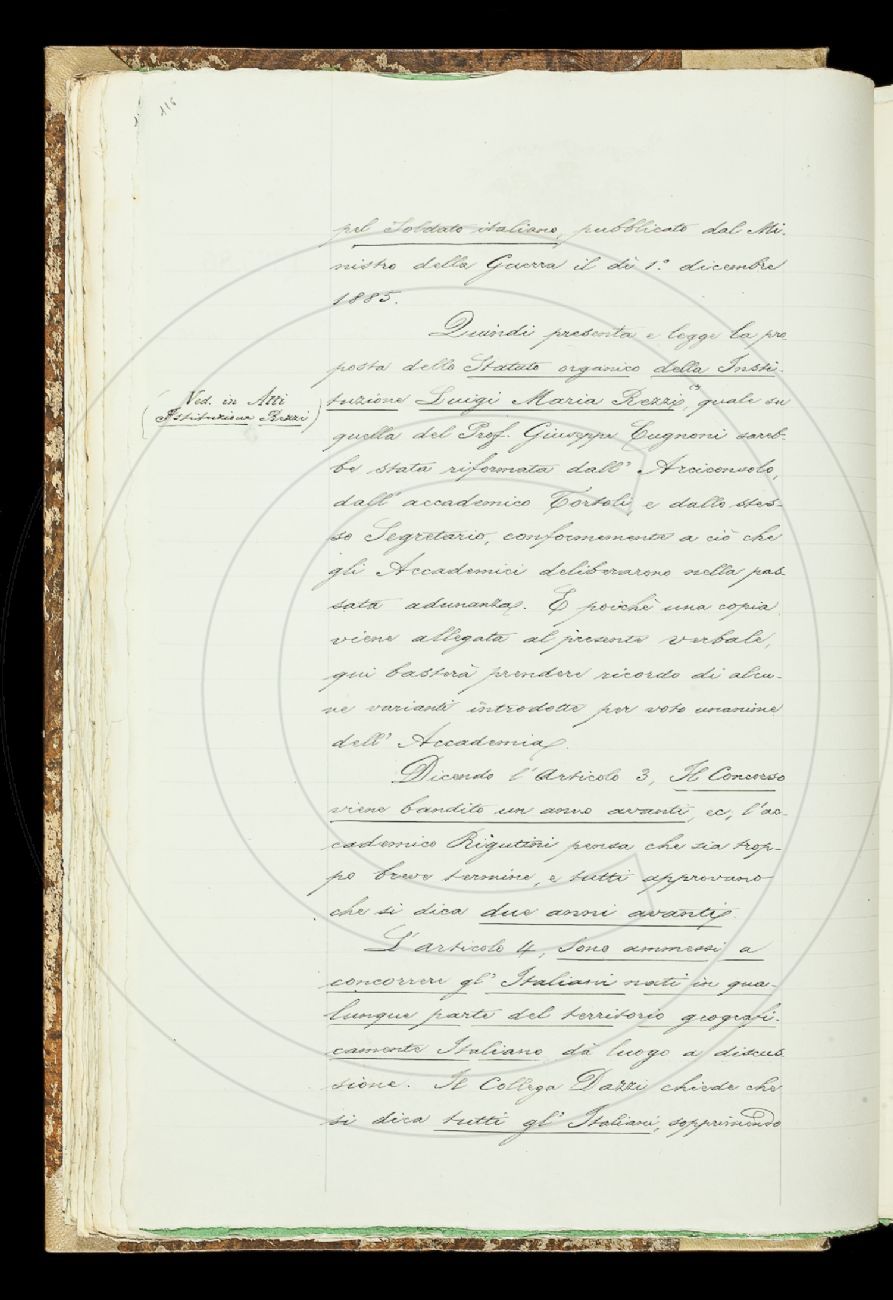 116
pel Soldato italiano, pubblicato dal Mi-
nistro della Guerra il dì 1.° dicembre
1885.
Quindi presenta e legge la pro
posta dello Statuto organico della Insti-
tuzione Luigi Maria Rezzi, quale su
(Ved. in Atti
Istituzione Rezzi)
quella del Prof. Giuseppe Cugnoni sareb-
be stata riformata dall' Arciconsolo,
dall' accademico Tortoli, e dallo stes-
so Segretario, conformemente a ciò che
gli Accademici deliberarono nella pas-
sata adunanza. E poichè una copia
viene allegata al presente verbale,
qui basterà prendere ricordo di alcu-
ne varianti introdotte per voto unanime
dell' Accademia.
Dicendo l'Articolo 3, Il Concorso
viene bandito un anno avanti, ec, l'ac-
cademico Rigutini pensa che sia trop-
po breve termine, e tutti approvano
che si dica due anni avanti.
L'articolo 4, Sono ammessi a
concorrere gl' Italiani nati in qua-
lunque parte del territorio geografi-
camente Italiano dà luogo a discus-
sione. Il Collega Dazzi chiede che
si dica tutti gl' Italiani, sopprimendo